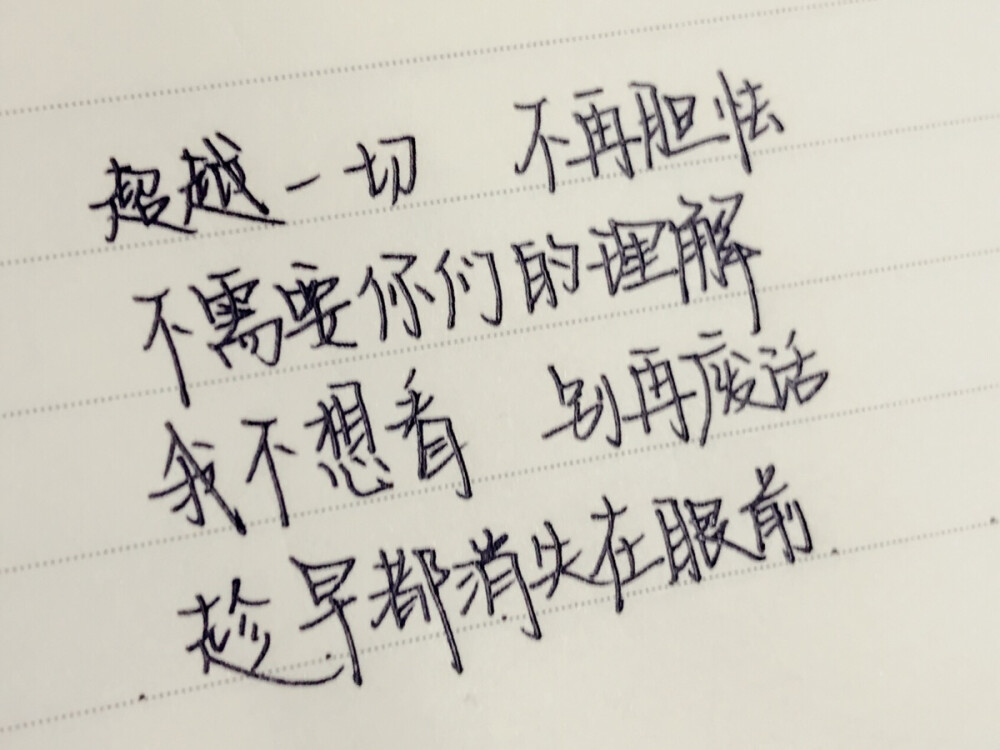 超越一切 不再胆怯
不需要你们的理解
我不想看 别再废话
趁早都消失在眼前